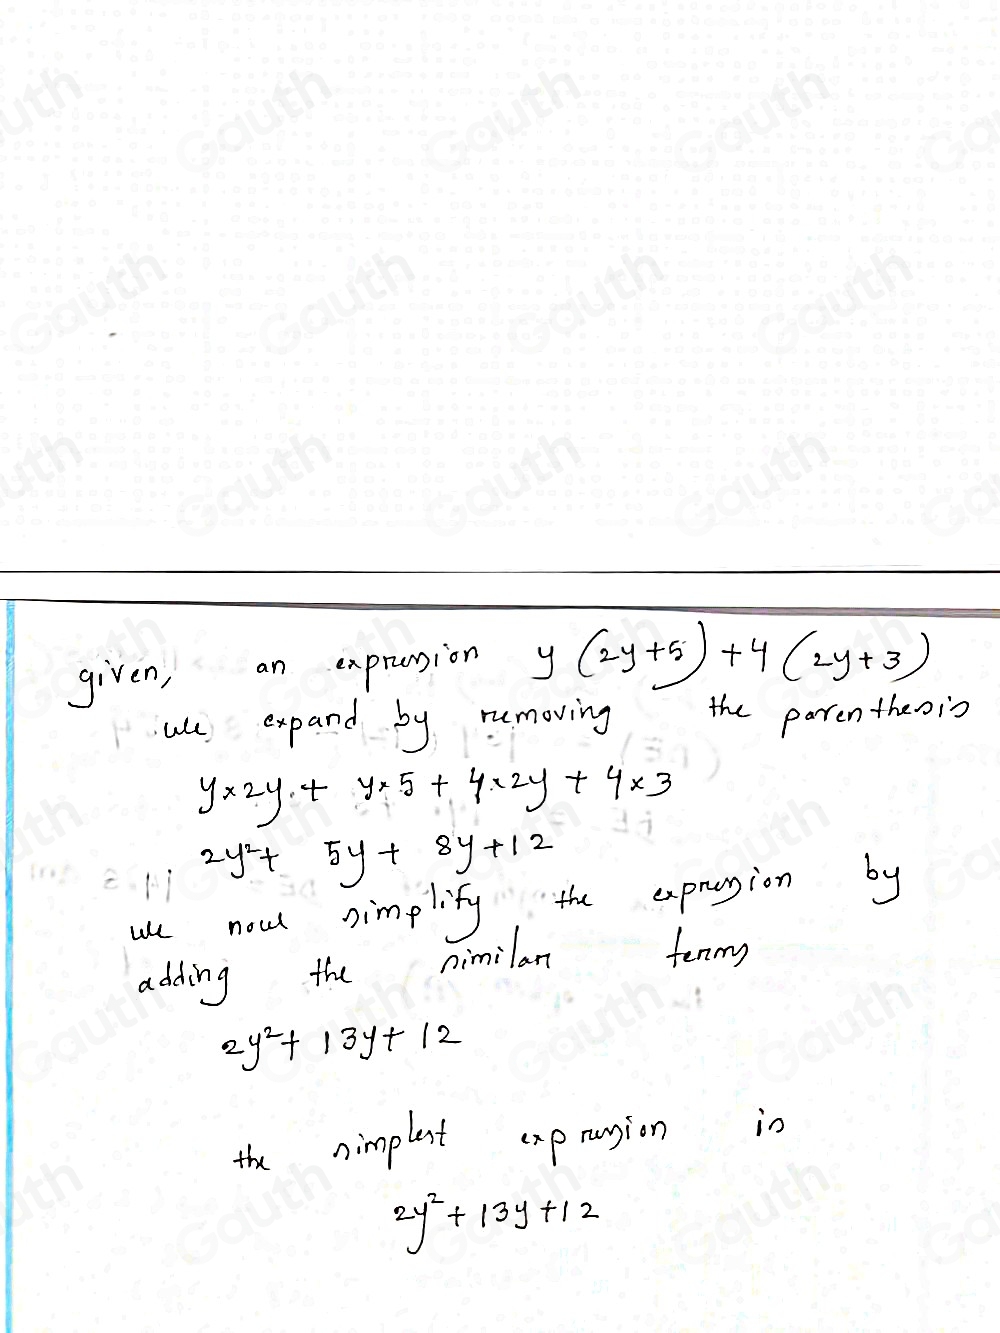 given, an expression y (2y+5) +4 (2y+3)
we expand by removing the parenthesis
y×2y + y×5 + 4×2y + 4×3
2y²+ 5y + 8y+12
we now simplify the expression by
adding the similar terms
2y²+ 13y+ 12
the simplest expression is
2y²+13y+12